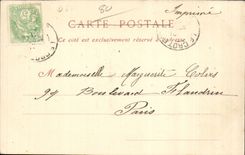 Imprimé
CARTE POSTALE
Ce côté est exclusivement réservé à l'adresse
LE CROTOY
Mademoiselle Marguerite Colins
39 Boulevard Flandrin
Paris